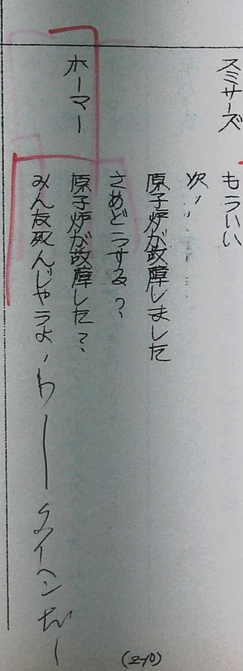 スミサーズ　もういい
次！
原子炉が故障しました
さあどうする？
ホーマー　原子炉が故障した？
みんな死んじゃうよ、わーータイヘンだー
(2-10)